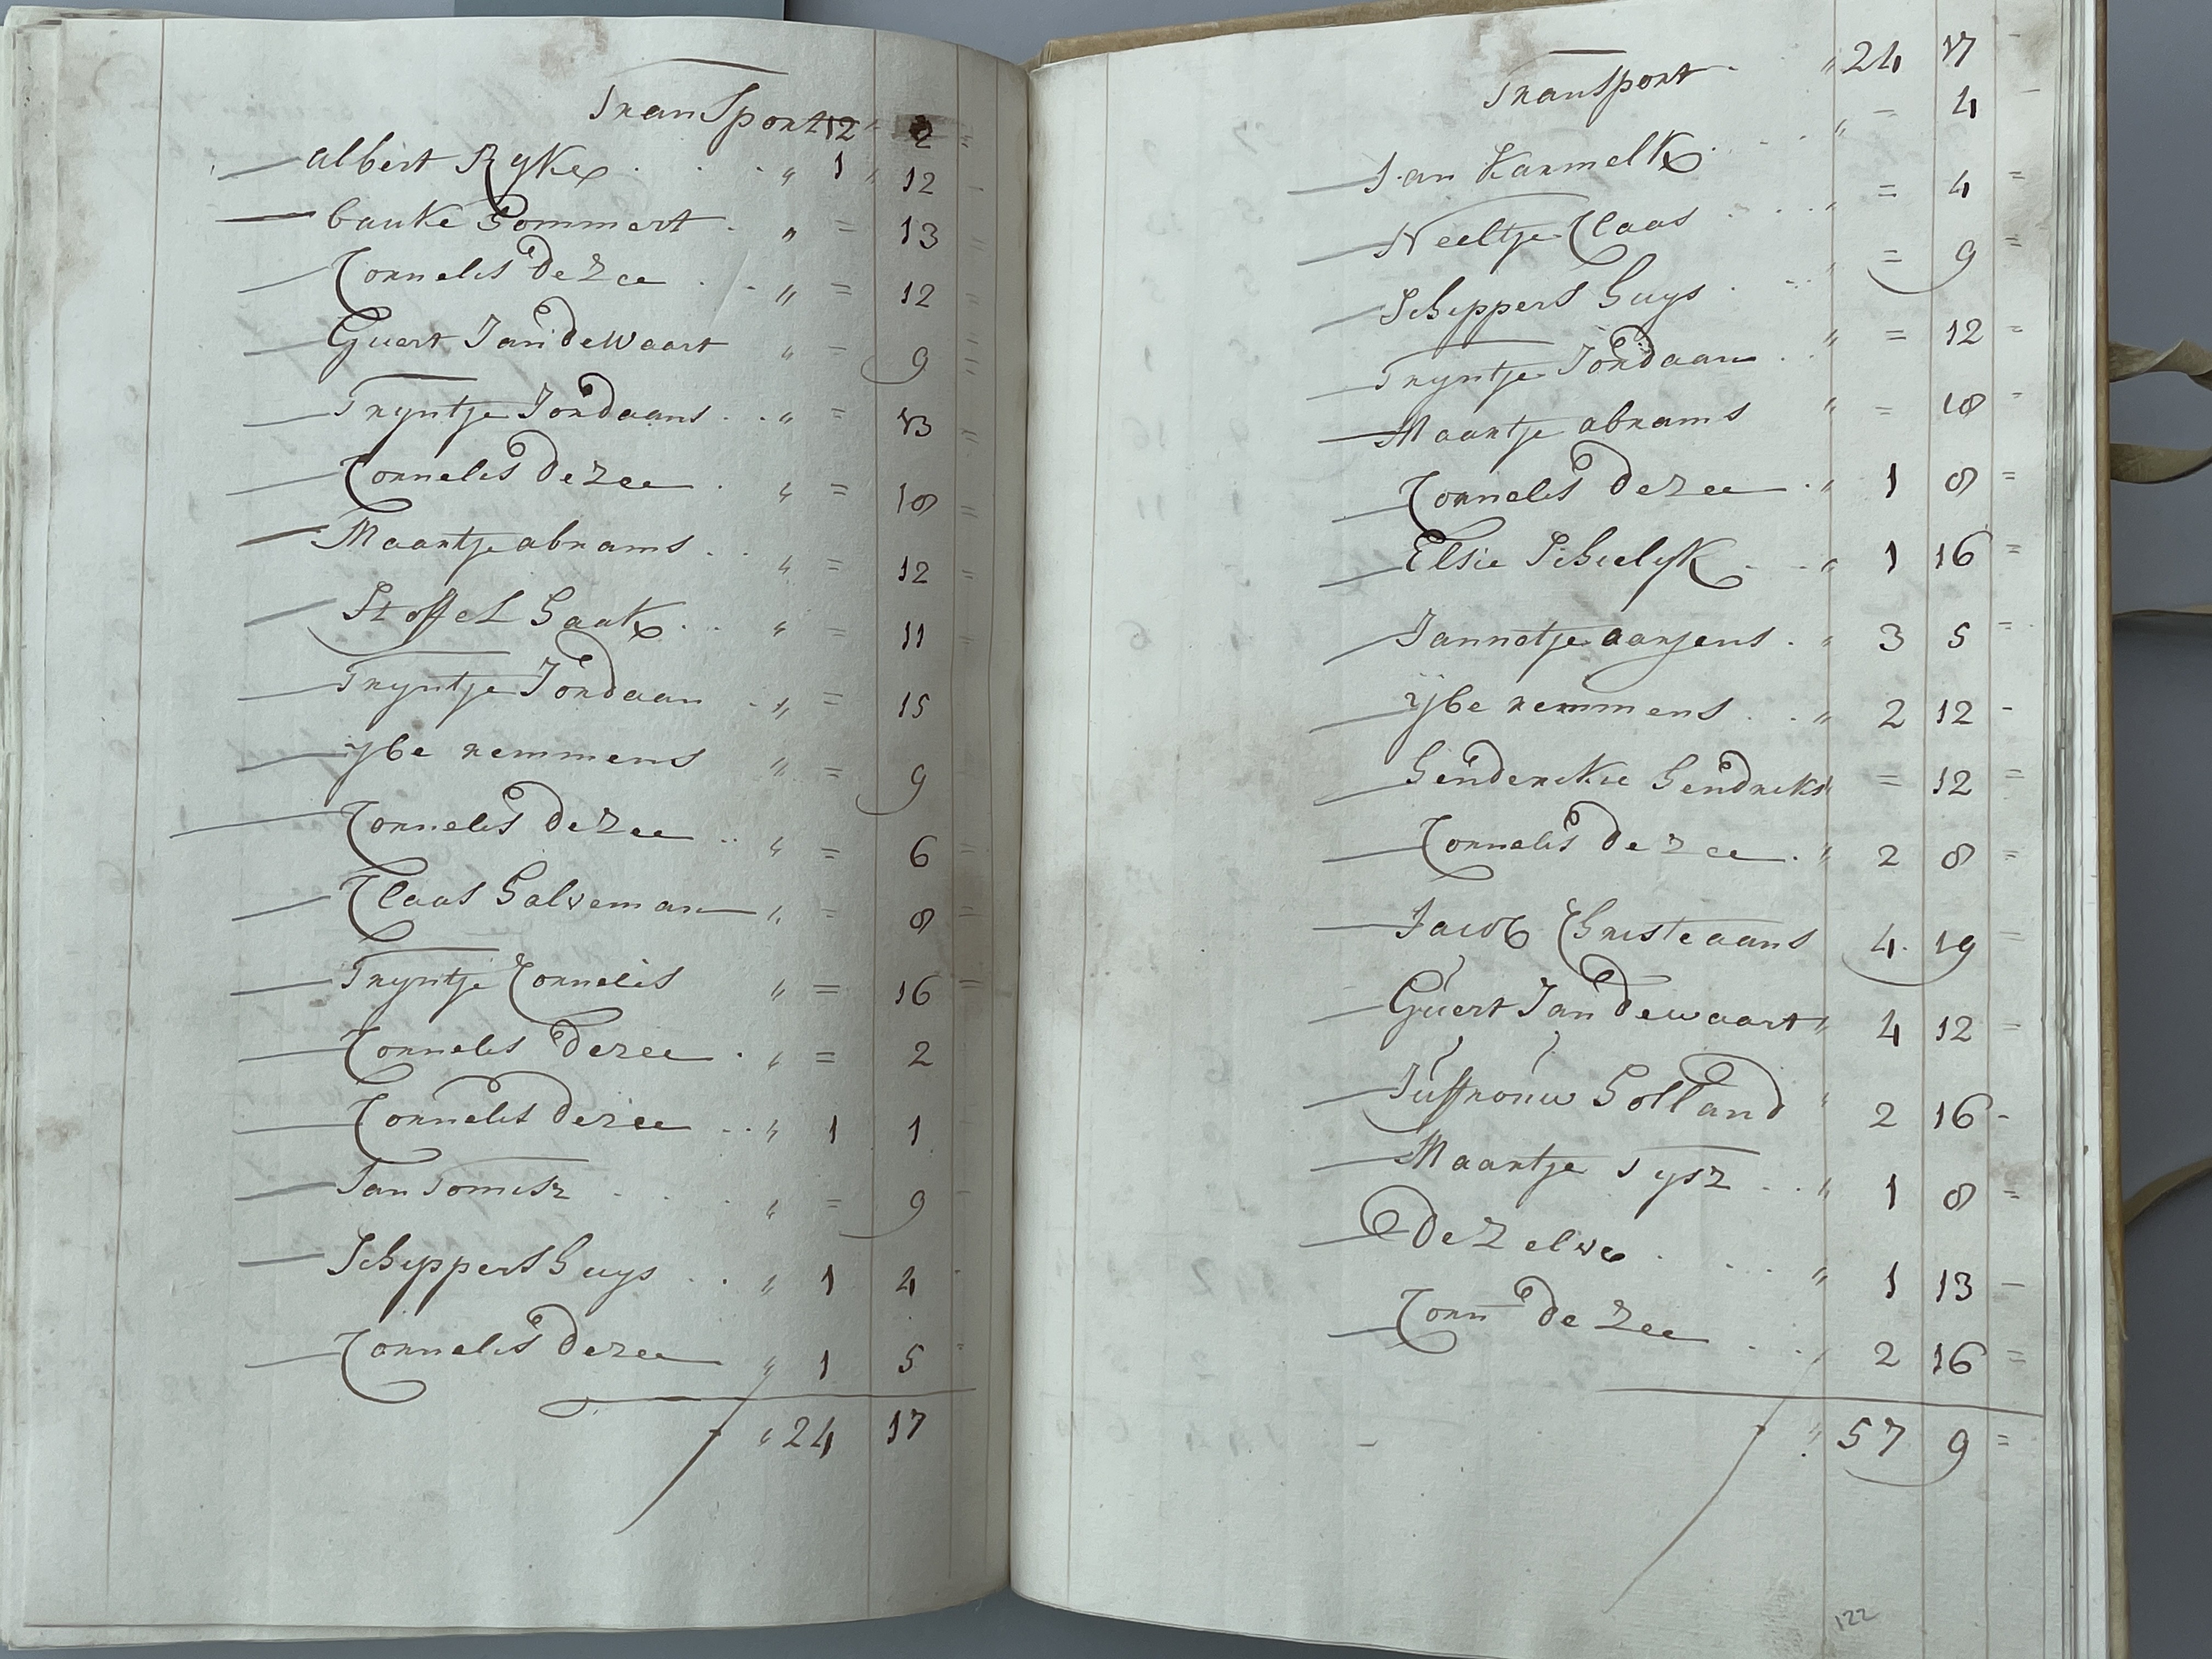 Transport 12 " 2 =
— albert Ryke . . . " 1 " 12 -
— bauke Gommert . " = 13 =
— Cornelis de Zee . - " = 12 =
— Guert Jan de Waart " = 9 =
— Tryntje Jordaans . . " = 13 =
— Cornelis de Zee . " = 18 =
— Maartje abrams . . " = 12 =
— Stoffel Haak . . " = 11 =
— Tryntje Jordaan - " = 15
— ijbe remmens " = 9
— Cornelis de Zee . . " = 6 =
— Claas Halveman " = 8 =
— Tryntje Cornelis " = 16 =
— Cornelis de Zee . " = 2
— Cornelis de Zee . . " 1 1
— Jan Tomisz . . . " = 9 -
— Schippers Huys . . " 1 4 -
— Cornelis de Zee " 1 5 =
" 24 17
Transport . . " 24 17 -
— Jan Karmelk . . . " = 4 -
— Neeltje Claas . . . " = 4 =
— Schippers Huys . . . " = 9 =
— Tryntje Jordaan . . " = 12 =
— Maartje abrams " = 18 =
— Cornelis de Zee . " 1 8 =
— Elsie Schielyk . . " 1 16 =
— Jannetje aarjens . " 3 5 =
— ijbe remmens . . " 2 12 -
— Henderikie Hendriks " = 12 =
— Cornelis de Zee . " 2 8 =
— Jacob Christeaans 4 . 19 =
— Guert Jan de waart " 4 12 =
— Juffrouw Holland " 2 16 -
— Maartje Tysz . . " 1 8 =
— de Zelve . . . . " 1 13 -
— Corn de Zee . . . " 2 16 =
" 57 9 =
122